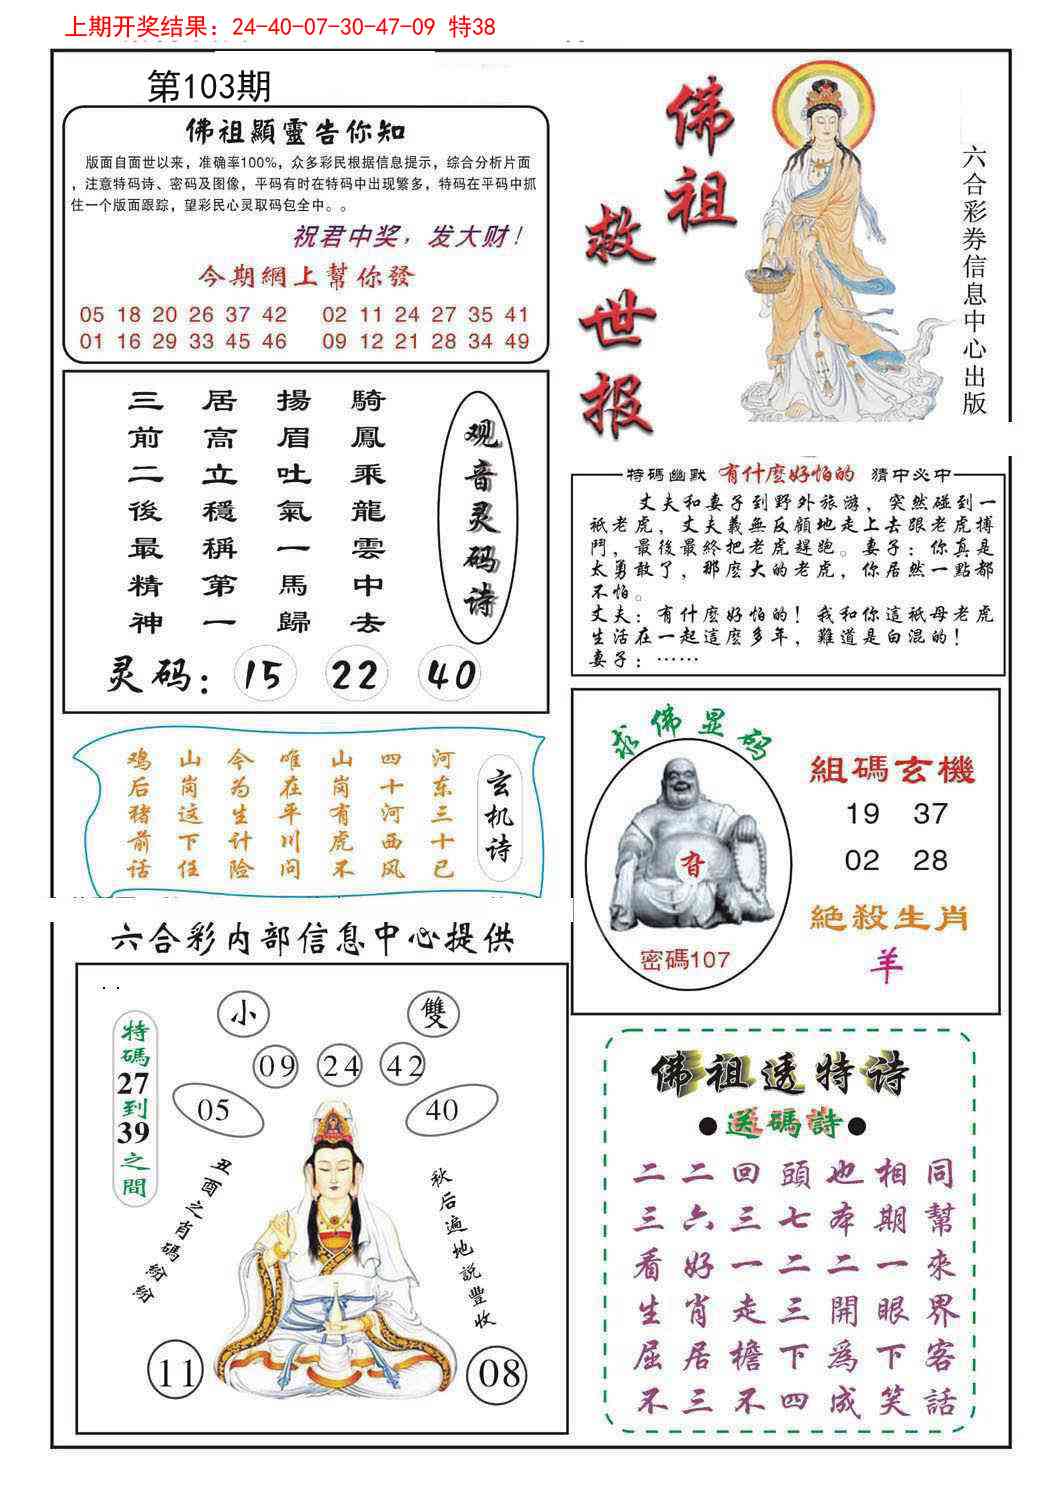 上期开奖结果：24-40-07-30-47-09 特38
第103期
佛祖顯靈告你知
版面自面世以来，准确率100%，众多彩民根据信息提示，综合分析片面
，注意特码诗、密码及图像，平码有时在特码中出现繁多，特码在平码中抓
住一个版面跟踪，望彩民心灵取码包全中。。
祝君中奖，发大财！
今期網上幫你發
05 18 20 26 37 42 02 11 24 27 35 41
01 16 29 33 45 46 09 12 21 28 34 49
佛祖
救世报
六合彩券信息中心出版
观音灵码诗
騎鳳乘龍雲中去
揚眉吐氣一馬歸
居高立穩稱第一
三前二後最精神
灵码： 15 22 40
特碼幽默 有什麼好怕的 猜中必中
丈夫和妻子到野外旅游，突然碰到一
祇老虎，丈夫義無反顧地走上去跟老虎搏
鬥，最後最終把老虎趕跑。妻子：你真是
太勇敢了，那麼大的老虎，你居然一點都
不怕。
丈夫：有什麼好怕的！我和你這祇母老虎
生活在一起這麼多年，難道是白混的！
妻子：……
玄机诗
河东三十已
四十河西风
山岗有虎不
唯在平川问
今为生计险
山岗这下任
鸡后猪前话
求佛显码
密碼107
組碼玄機
19 37
02 28
絕殺生肖
羊
六合彩内部信息中心提供
小 雙
09 24 42
05 40
特碼27到39之間
丑酉之肖碼紛紛
秋后遍地說豐收
11 08
佛祖透特诗
●送碼詩●
二二回頭也相同
三六三七本期幫
看好一二二一來
生肖走三開眼界
屈居檐下為下客
不三不四成笑話